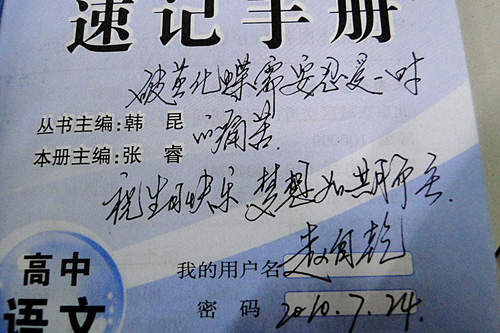 速记手册
破茧化蝶需要忍受一时
丛书主编:韩 昆
的痛苦.
本册主编:张 睿
祝生日快乐 梦想如期而至.
高中
我的用户名
语文
密 码 2010.7.24.